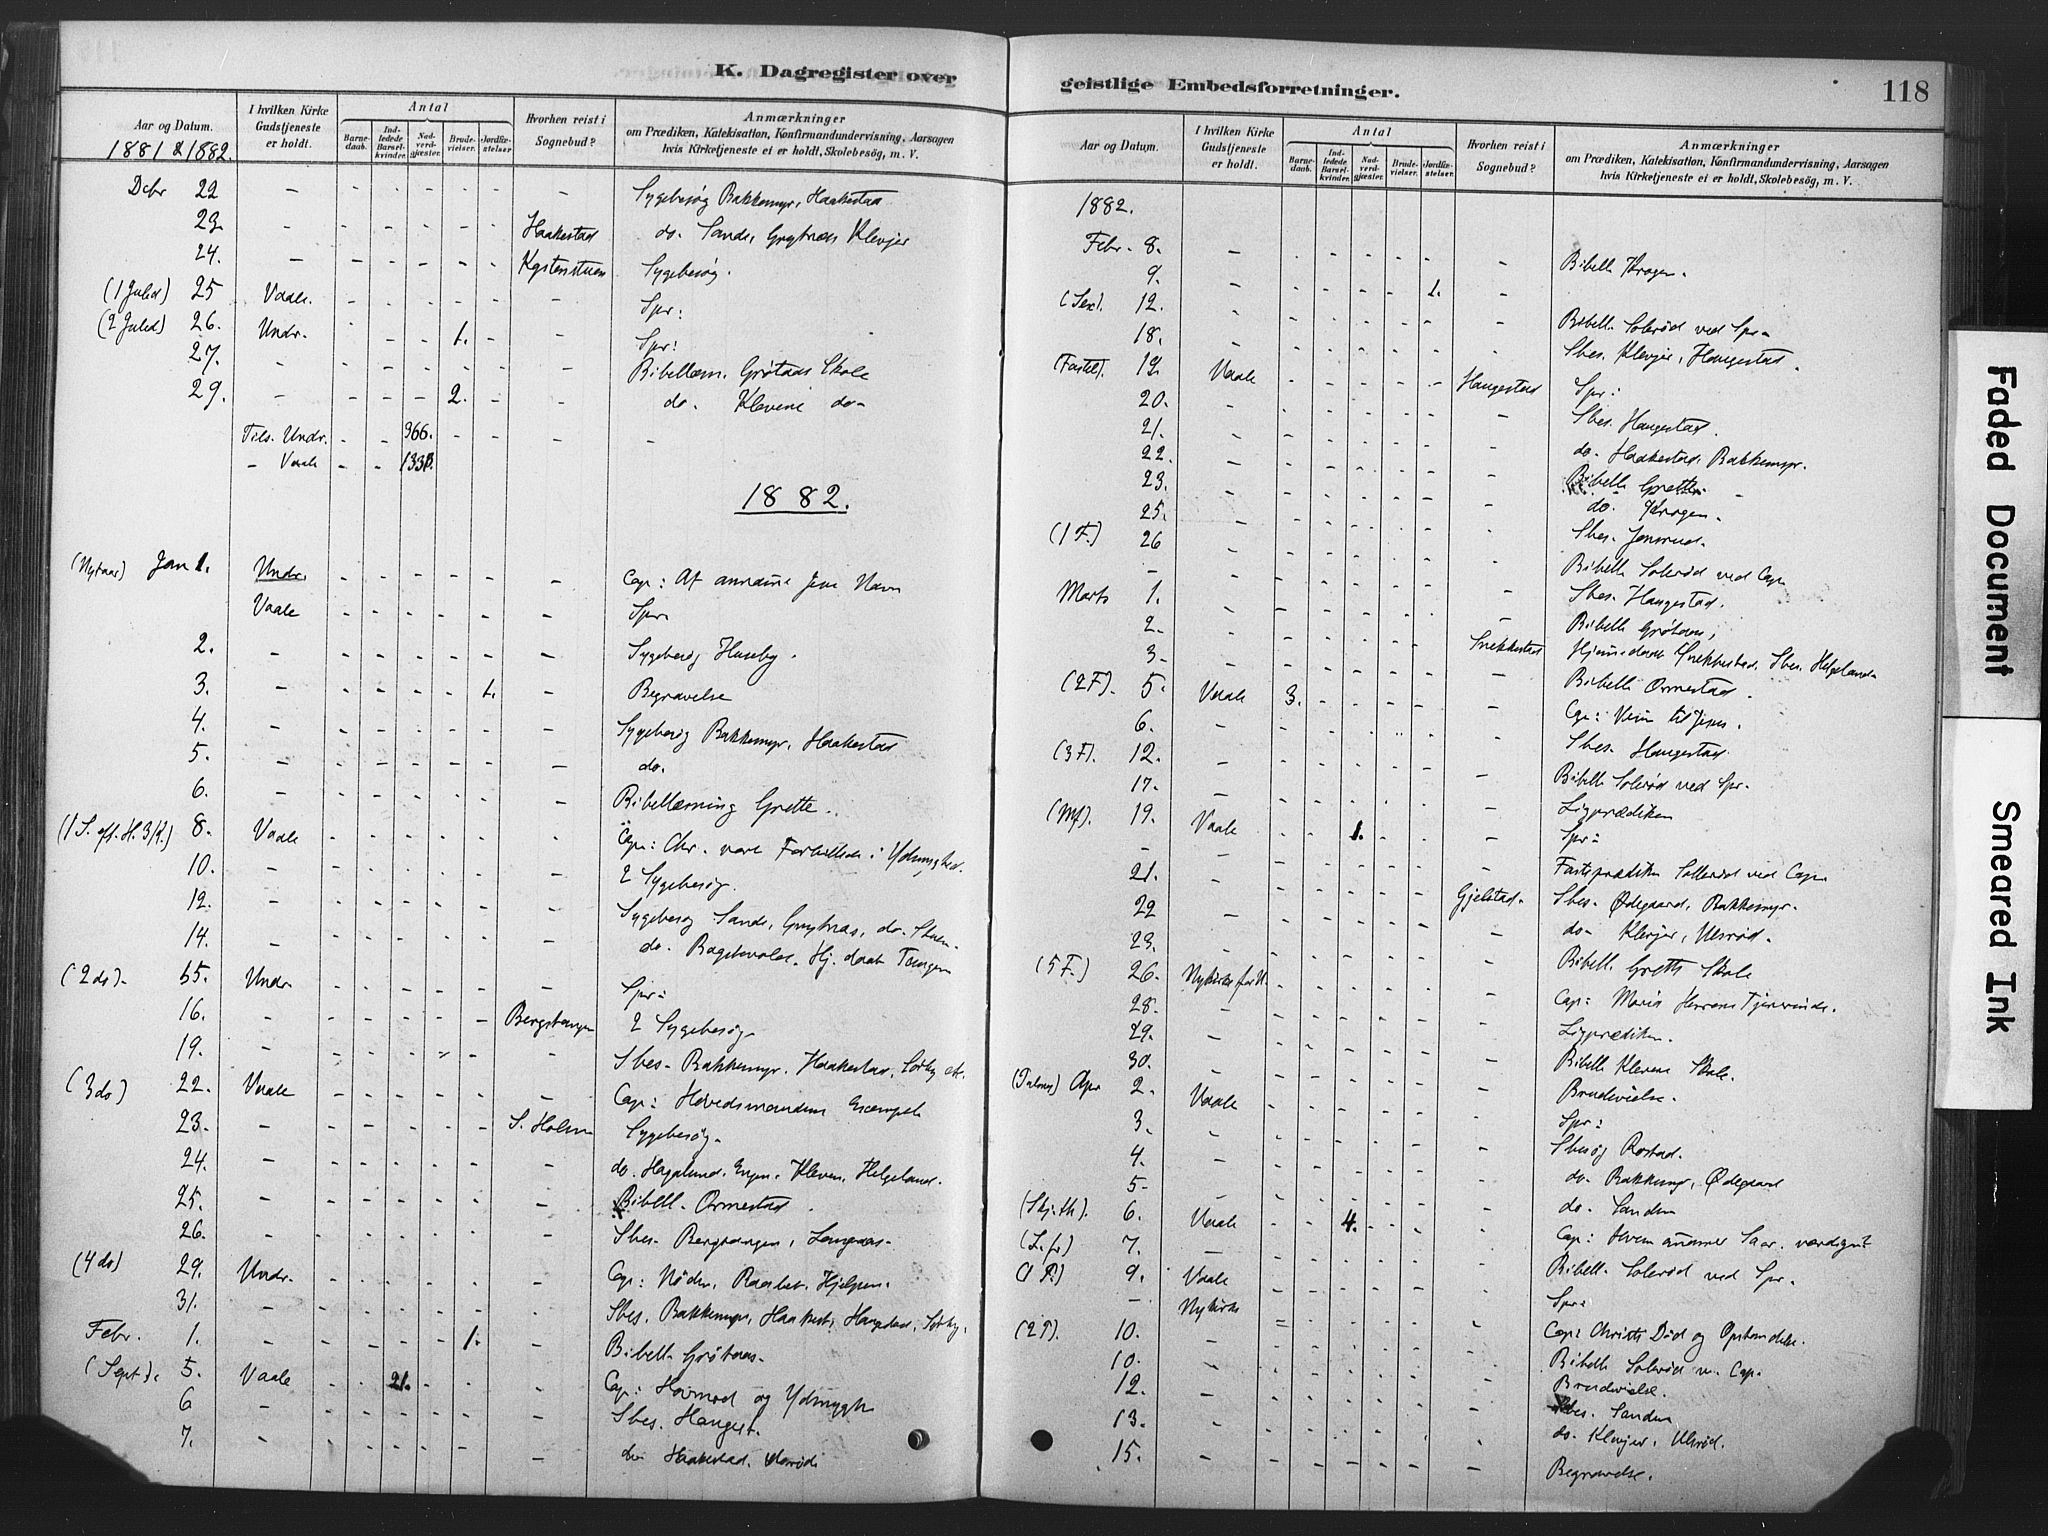 K. Dagregister over
Aar og Datum.
1881 & 1882.
I hvilken Kirke Gudstjeneste er holdt.
Antal
Barnedaab.
Indledede Barselkvinder.
Nadverdgjæster.
Brudevielser.
Jordfæstelser
Hvorhen reist i Sognebud?
Anmærkninger
om Prædiken, Katekisation, Konfirmandundervisning, Aarsagen
hvis Kirketjeneste ei er holdt, Skolebesøg, m. V.
Dcbr 22 - - - - - - - Sygebesøg Bakkemyr, Haakestad
23 - - - - - - Haakestad do. Sande, Grytnæs Klevjer
24. - - - - - - Sygebesøg.
(1 Juled) 25 Vaale. - - - - - - Spr:
(2 Juled) 26. Undr. - - - 1. - Spr:
27. - - - - - - - Bibellæsn. Grøtaas Skole
29. - - - - 2. - - do. Klevene do-
Tils. Undr. - - 366. - - - -
- Vaale - - 133
1882.
(Nytaar) Jan 1. Undr. - - - - - - Cap: At annamme Jesu Navn
Vaale - - - - - - Spr.
2. - - - - - - - Sygebesøg Huseby.
3. - - - - - 1. - Begravelse
4. - - - - - - - Sygebesøg Bakkemyr, Haakestad
5. - - - - - - - do.
6. - - - - - - - Bibellæsning Grette.
(1 S. eft. H. 3 K.) 8. Vaale - - - - - - Cap: Chr. vort Forbillede i Ydmyghed.
10. - - - - - - - 2 Sygebesøg.
12. - - - - - - - Sygebesøg Sande, Grytnæs, do.
14. - - - - - - - do. Hj. daab Tangen
(2 do). 15. Undr. - - - - - - Spr:
16. - - - - - - Bergstangen 2 Sygebesøg
19. - - - - - - - Sbes. Bakkemyr. Haakestad, Solby etc.
(3 do) 22. Vaale - - - - - - Cap: Høvedsmandens Exempel
23. - - - - - - S. Holm Sygebesøg.
24. - - - - - - - do. Hagelund. Engen. Kleven. Helgeland.
25. - - - - - - - Bibell. Ormestad
26. - - - - - - - Sbes. Bergtangen, Langnæs.
(4 do) 29. Undr. - - - - - - Cap: Nøden, Raabet, Hjelpen.
31. - - - - - - - Sbes. Bakkemyr, Haakest, Haugestad, Solby.
Febr. 1. - - - - 1. - - Bibell. Grøtaas.
(Sept). 5. Vaale - - 21. - - - Cap: Hovmod og Ydmygh
6 - - - - - - - Sbes. Haugest.
7. - - - - - - - do Haakestad. Ulsrød
geistlige Embedsforretninger.
118
Aar og Datum.
I hvilken Kirke Gudstjeneste er holdt.
Antal
Barnedaab.
Indledede Barselkvinder.
Nadverdgjæster.
Brudevielser.
Jordfæstelser.
Hvorhen reist i Sognebud?
Anmærkninger
om Prædiken, Katekisation, Konfirmandundervisning, Aarsagen
hvis Kirketjeneste ei er holdt, Skolebesøg, m. V.
1882.
Febr. 8. - - - - - - - Bibell. Krogen.
9. - - - - - 1. -
(Sex). 12. - - - - - - - Bibell. Solerød ved Spr.
18. - - - - - - - Sbes. Klevjer, Haugestad.
(Fastel). 19. Vaale - - - - - Haugestad Spr:
20. - - - - - - - Sbes. Haugestad.
21. - - - - - - - do. Haakestad. Bakkemyr.
22. - - - - - - - Bibell. Grette.
23. - - - - - - - do. Krogen.
25. - - - - - - - Sbes. Jonsrud.
(1 F.) 26 - - - - - - - Bibell. Solerød ved Cap
Marts 1. - - - - - - - Sbes. Haugestad.
2. - - - - - - - Bibell. Grøtaas,
3. - - - - - - Snekkestad Hjemmedaab Snekkestad. Sbes. Helgeland
Bibell. Ormestad.
(2 F). 5. Vaale 3. - - - - - Cap: Veien til Jesus.
6. - - - - - - - Sbes. Haugestad.
(3 F). 12. - - - - - - - Bibell. Solerød ved Spr.
17. - - - - - - - Ligprædiken
(Mf). 19. Vaale - - 1. - - - Spr:
- - - - - - - - Fasteprædiken Sollerød ved Cap.
21. - - - - - - Gjelstad. Sbes. Ødegaard, Bakkemyr.
22 - - - - - - - do- Klevjer, Ulsrød.
23. - - - - - - - Bibell. Grette Skole
(5 F.) 26. Nykirke for U. - - - - - - Cap: Maria Herrens Tjenerinde.
28. - - - - - - - Ligprædiken.
29. - - - - - - - Bibell. Klevene Skole.
30. - - - - - - - Brudevielse.
(Palmes) Apr 2. Vaale - - - - - - Spr:
3. - - - - - - - Sbesøg Rostad.
4. - - - - - - - do. Bakkemyr, Ødegaard
5- - - - - - - - do. Sanden
(Skj.th). 6. Vaale - - 4. - - - Cap:
(L.fr) 7. - - - - - - - Bibell. Solerød ved Spr.
(1 P.) 9. Vaale - - - - - - Spr:
- Nykirke - - - - - - Cap: Christi Død og Opstandelse.
(2 P). 10. - - - - - - - Bibell. Solerød v. Cap.
10. - - - - - - - Brudevielse.
12. - - - - - - - Sbes. Sanden
13. - - - - - - - do. Klevjer, Ulsrød.
15. - - - - - - - Begravelse.
Faded Document
Smeared Ink